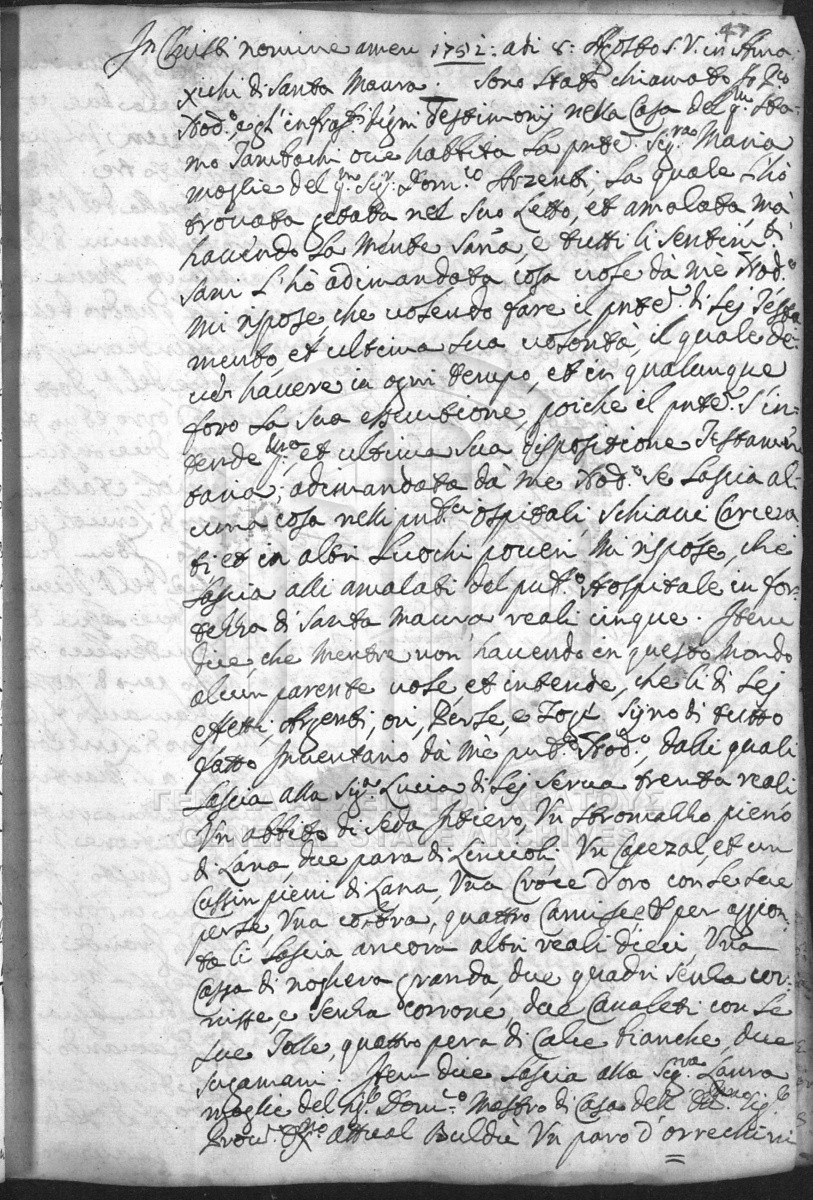 47
In Christi nomine amen 1751: adi 8: Agosto S.V. in Ama
xichi di Santa Maura. Sono stato chiamato Io
Nod:o, e gl'infrati degni Testimonij nella Casa del q:m Sta
mo Tambachi ove habbita la pnte Sig:ra Maria
moglie del q:m Sig:r Dom:co Arzenti la quale l'hò
trovata getata nel suo Letto, et amalata, mà
havendo la mente sana, e tutti li sentim:ti
sani l'hò adimandata cosa vole dà mè Nod:o
mi rispose, che volendo fare il pnte di lej Testa
mento, et ultima sua volontà, il quale de
ve havere in ogni tempo, et in qualunque
foro la sua essecutione, poiche il pnte s'in
tende p:mo, et ultima sua dispositione Testamen
taria; adimandata dà me Nod:o se lascia al
cuna cosa nelli pnd:ti ospitali, schiavi Carcera
ti et in altri Luochi poveri mi rispose, che
lascia alli amalati del pnt:e Hospitale in for
tezza di Santa Maura reali cinque. Item
dice, che mentre non havendo in questo mondo
alcun parente vole, et intende, che li di lej
effetti, Arzenti, ori, Perle, e Zogie sijno di tutto
fatto Inventario dà mè pnd:o Nod:o, dalli quali
lascia alla Sig:a Lucia di lej serva trenta reali
Un abbito di seda Intiero, Un stramazzo pieno
di Lana, due para di Lenzioli, Un Capezal, et un
Cussin pieni di Lana, Una Croce d'oro con le sue
perle, Una coltra, quattro Camise, et per aggion
ta li lascia ancora altri reali dieci, Una
Cassa di noghera granda, due quadri senza cor
nisse, e senza corrone, due Cavaleti con le
sue Tolle, quattro pera di Calce bianche, due
sugamani. Item dice lascia alla Sig:ra Laura
moglie del Sig:r Dom:co Mastro di Casa dell'
Prov:r attual Baldù Un paro d'orrechini
ΓΕΝΙΚΑ ΑΡΧΕΙΑ ΤΟΥ ΚΡΑΤΟΥΣ
GENERAL STATE ARCHIVES